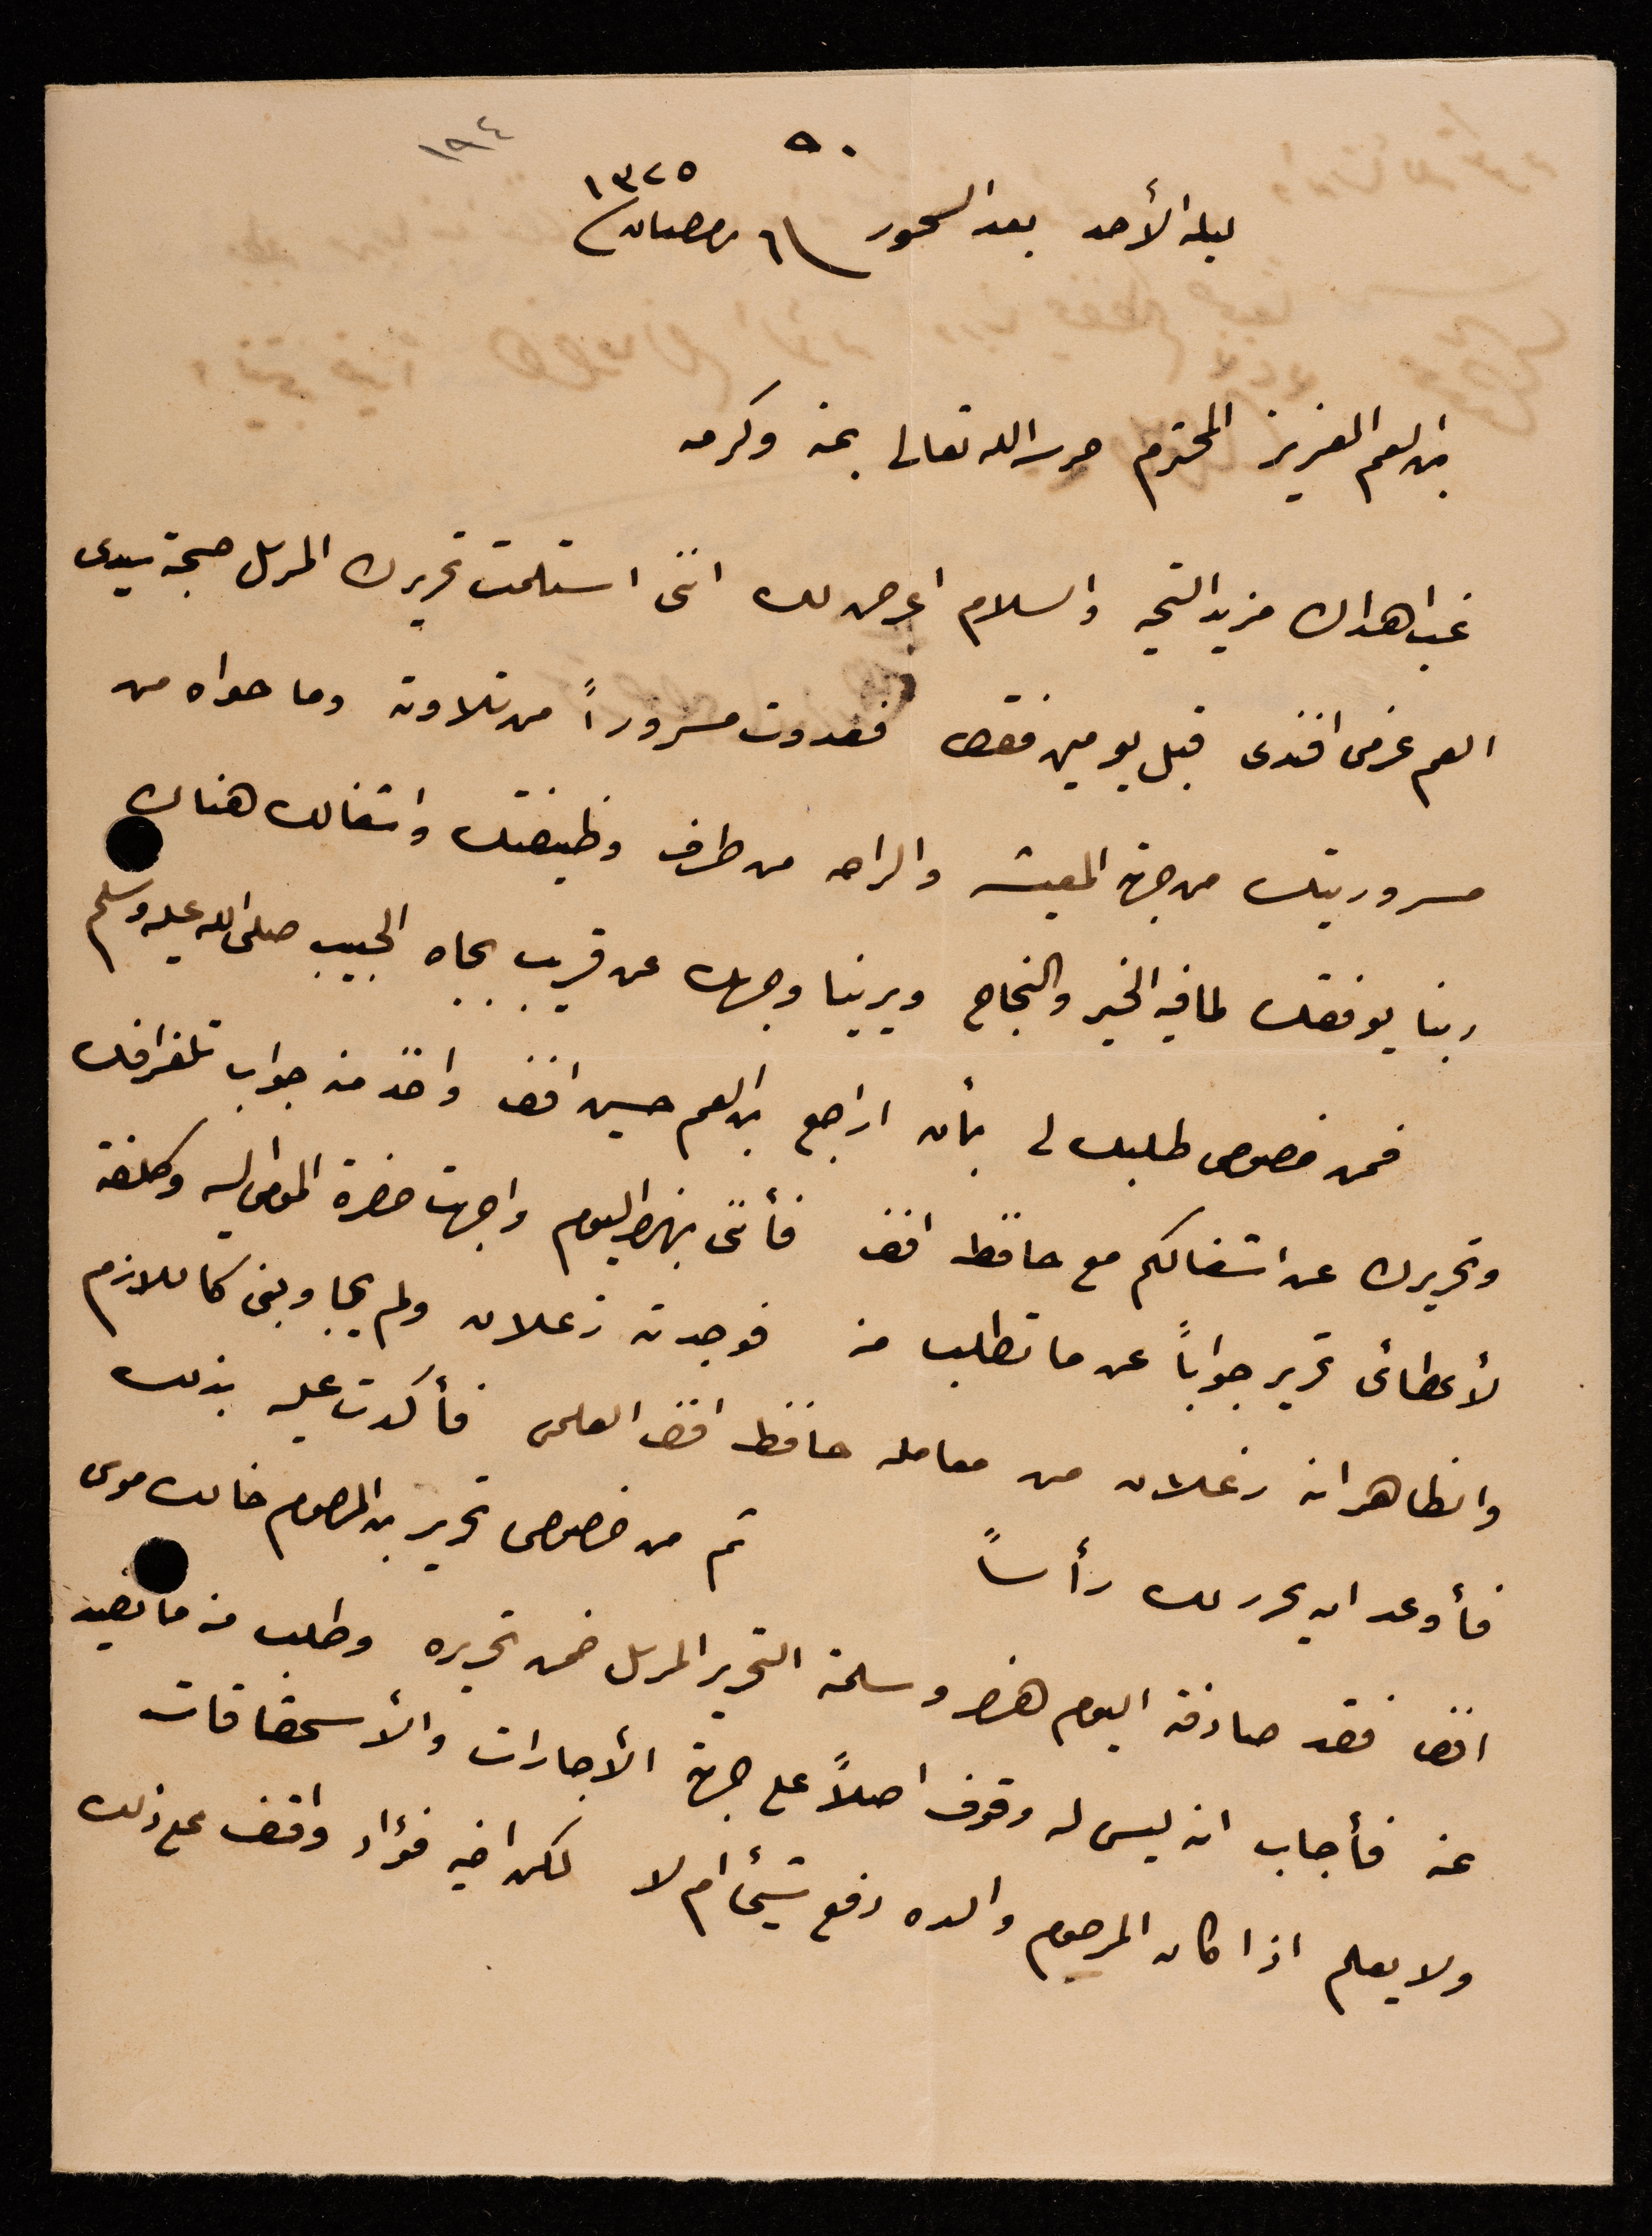 ١٩٤
٥٠
ليلة الأحد بعد السحور ٦ رمضان ١٣٢٥
ابن العم العزيز المحترم حرسه الله تعالى بمنه وكرمه
غب اهداك مزيد التحيه والسلام اعرض لك انني استلمت تحريرك المرسل صحبة سيدي
العم عزمى افندى قبل يومين فقط فغدوت مسروراً من تلاوته وما حواه من
مسروريتك من جهة المعيشه والراحه من طرف وظيفتك واشغالك هناك
ربنا يوفقك لما فيه الخير والنجاح ويرينا وجهك عن قريب بجاه الحبيب صلى الله عليه وسلم
فمن خصوص طلبك لي بأن اراجع ابن العم حسين افندي واخذ منه جواب تلغرافك
وتحريرك عن اشغالكم مع حافظ افندي فأنني بنهار اليوم واجهت حضرة المومى اليه وكلفته
لأعطائى تحرير جواباً عن ما تطلب منه فوجدته زعلان ولم يجاوبني كاللازم
والظاهر انه زعلان من معاملة حافظ افندي العلمى فأكدت عليه بذلك
فأوعد انه يحرر لك رأساً ثم من خصوص تحرير ابن المرحوم خالك موسى
افندي فقد صادفته اليوم ظهر وسلمته التحرير المرسل ضمن تحريره وطلب منه ما تفيد
عنه فأجاب انه ليس له وقوف اصلاً على جهة الأجارات والأستحقاقات
ولا يعلم اذا كان المرحوم والده دفع شيئاً ام لا لكن اخيه فؤاد واقف على ذلك